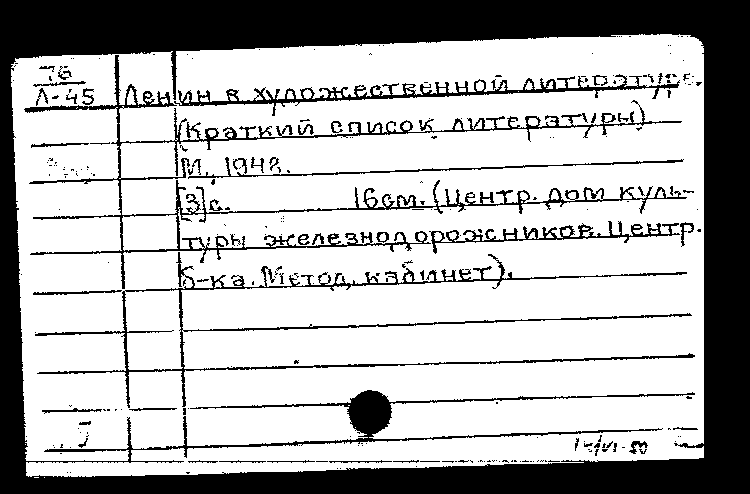 76
Л-45 Ленин в художественной литературе.
(Краткий список литературы)
М., 1948.
[3]с. 16см. (Центр. дом куль-
туры железнодорожников. Центр.
б-ка. Метод. кабинет).